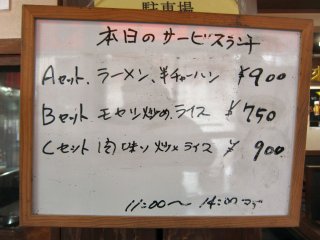 駐車場
本日のサービスランチ
Aセット.ラーメン、半チャーハン ¥900
Bセット モヤシ炒め.ライス ¥750
Cセット 肉味ソ炒め ライス ¥900
11:00〜14:00まで